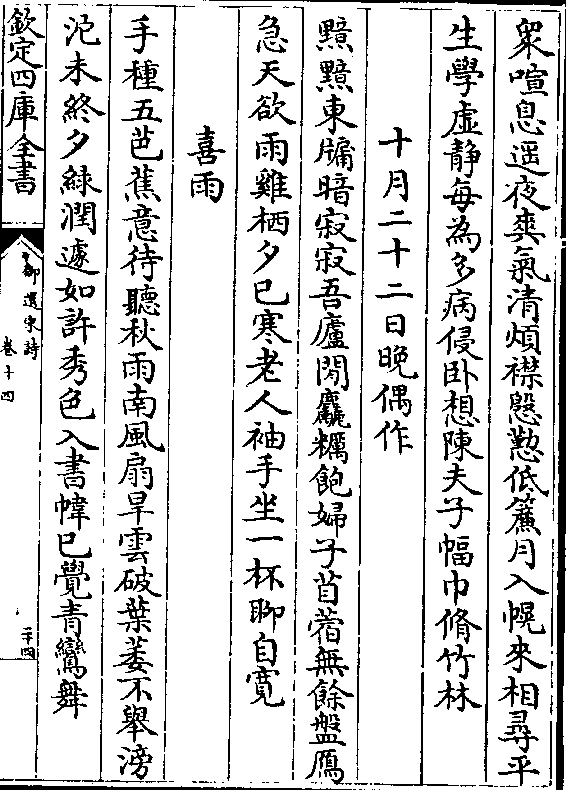 衆喧息遥夜爽氣清煩襟慇懃低簷月入幌來相尋平
生學虛靜每為多病侵卧想陳夫子幅巾脩竹林
十月二十二日晚偶作
黯黯東牖暗寂寂吾廬閒麤糲飽婦子苜蓿無餘盤鴈
急天欲雨雞栖夕已寒老人袖手坐一杯聊自寛
喜雨
手種五芭蕉意待聽秋雨南風扇旱雲破葉萎不舉滂
沱未終夕緑潤遽如許秀色入書幃已覺青鸞舞
欽定四庫全書
御選宋詩
卷十四
二十四